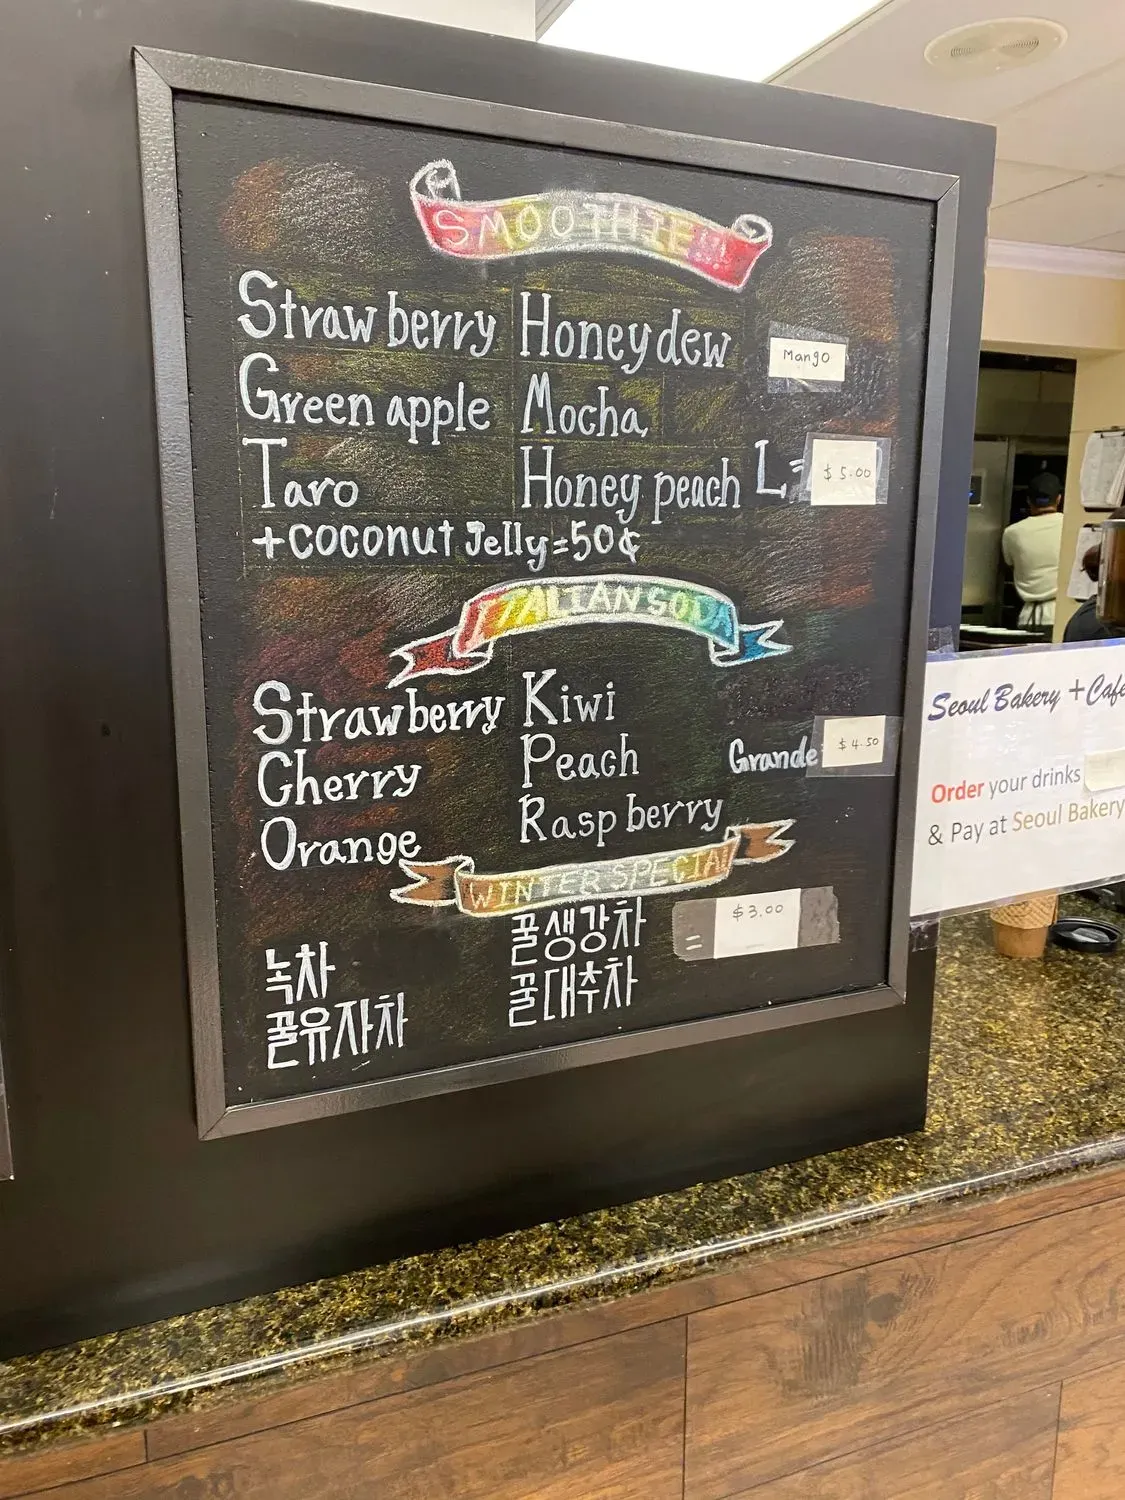 SMOOTHIE!!
Strawberry Honeydew Mango
Green apple Mocha,
Taro Honey peach L= $5.00
+coconut Jelly=50¢
ITALIAN SODA
Strawberry Kiwi
Cherry Peach Grande $4.50
Orange Raspberry
WINTER SPECIAL
녹차 꿀생강차 = $3.00
꿀유자차 꿀대추차
Seoul Bakery + Cafe
Order your drinks
& Pay at Seoul Bakery